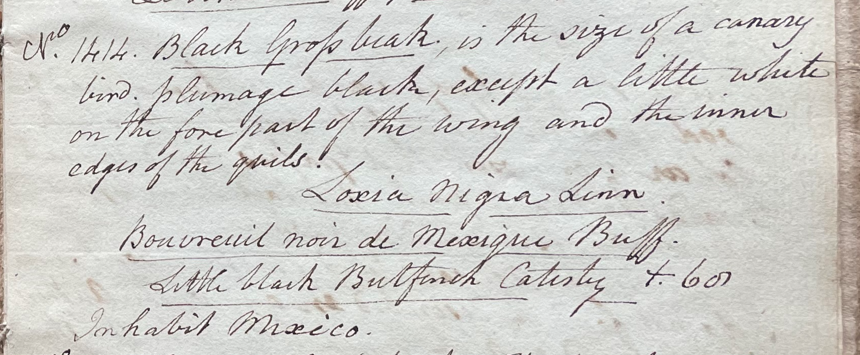 No. 1414. Black Grosbeak, is the size of a canary
bird. plumage black, except a little white
on the fore part of the wing and the inner
edges of the quils.
Loxia Nigra Linn.
Bouvreuil noir de Mexique Buff.
Little black Bulfinch Catesby t. 68
Inhabit Mexico.